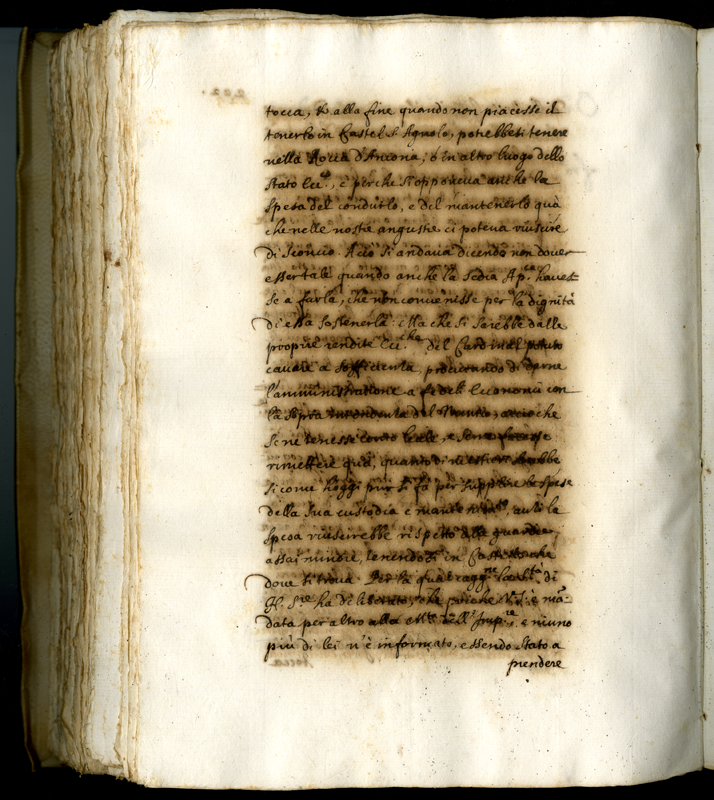 tocca, et alla fine quando non piacesse il
tenerlo in Castel S. Agnolo, potrebbesi tenere
nella Rocca d'Ancona, ò in altro luogo dello
stato Ecc.co, e perche si opponeua anche la
spesa del condurlo, e del mantenerlo quà
che nelle nostre angustie ci poteua riuscire
di sconcio. Acciò si andaua dicendo non douer
esser tale quando anche la Sedia Ap.ca haues-
se a farla, che non conuenisse per la dignità
di essa sostenerla: Ma che si sarebbe dalle
proprie rendite Ecc.che del Cardinal potuto
cauare a sofficienza, procurando di darne
l'amministratione a fedeli Economi con
la sopra intendenza del Nuntio, accioche
se ne tenesse conto leale, e se ne facesse
rimettere quà, quanto di mestieri sarebbe
si come hoggi pur si fà per supplire le spese
della sua custodia e mantenim.to, anzi la
spesa riuscirebbe rispetto alle guardie,
assai minore, tenendosi in Castello che
doue si troua. Per la qual ragg.ne la S.tà di
N. S.re ha deliberato, che poiche V. S. è man-
data per altro alla M.tà dell'Imp.re, e niuno
più di lei n'è informato, essendo stato a
prendere